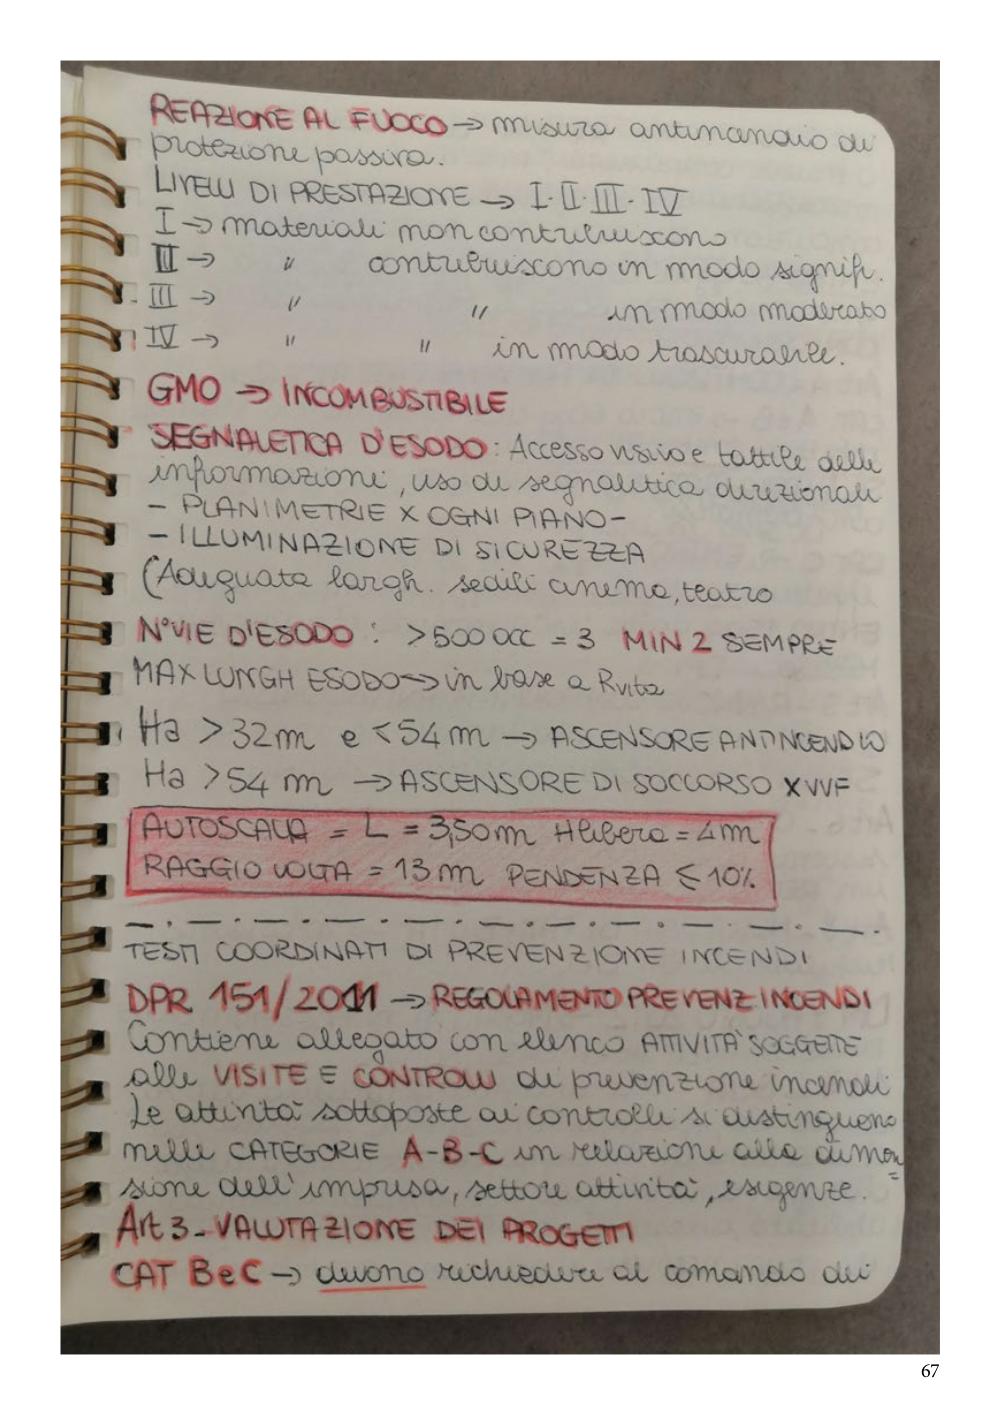 REAZIONE AL FUOCO → misura antincendio di
protezione passiva.
LIVELLI DI PRESTAZIONE → I·II·III·IV
I → materiali non contribuiscono
II → " contribuiscono in modo signifi.
III → " " in modo moderato
IV → " " in modo trascurabile.
GM0 → INCOMBUSTIBILE
SEGNALETICA D'ESODO: Accesso visivo e tattile delle
informazioni, uso di segnaletica direzionali
- PLANIMETRIE X OGNI PIANO-
- ILLUMINAZIONE DI SICUREZZA
(Adeguata largh. sedili cinema, teatro
N° VIE D'ESODO: >500 OCC = 3 MIN 2 SEMPRE
MAX LUNGH ESODO → in base a Rvita
Ha >32m e <54m → ASCENSORE ANTINCENDIO
Ha >54 m → ASCENSORE DI SOCCORSO X VVF
AUTOSCALA = L = 3,50m H libera = 4m
RAGGIO VOLTA = 13m PENDENZA ≤ 10%
TESTI COORDINATI DI PREVENZIONE INCENDI
DPR 151/2011 → REGOLAMENTO PREVENZ INCENDI
Contiene allegato con elenco ATTIVITA' SOGGETTE
alle VISITE E CONTROLLI di prevenzione incendi
Le attività sottoposte ai controlli si distinguono
nelle CATEGORIE A-B-C in relazione alla dimen=
sione dell'impresa, settore attività, esigenze.
Art 3 - VALUTAZIONE DEI PROGETTI
CAT B e C → devono richiedere al comando dei
67